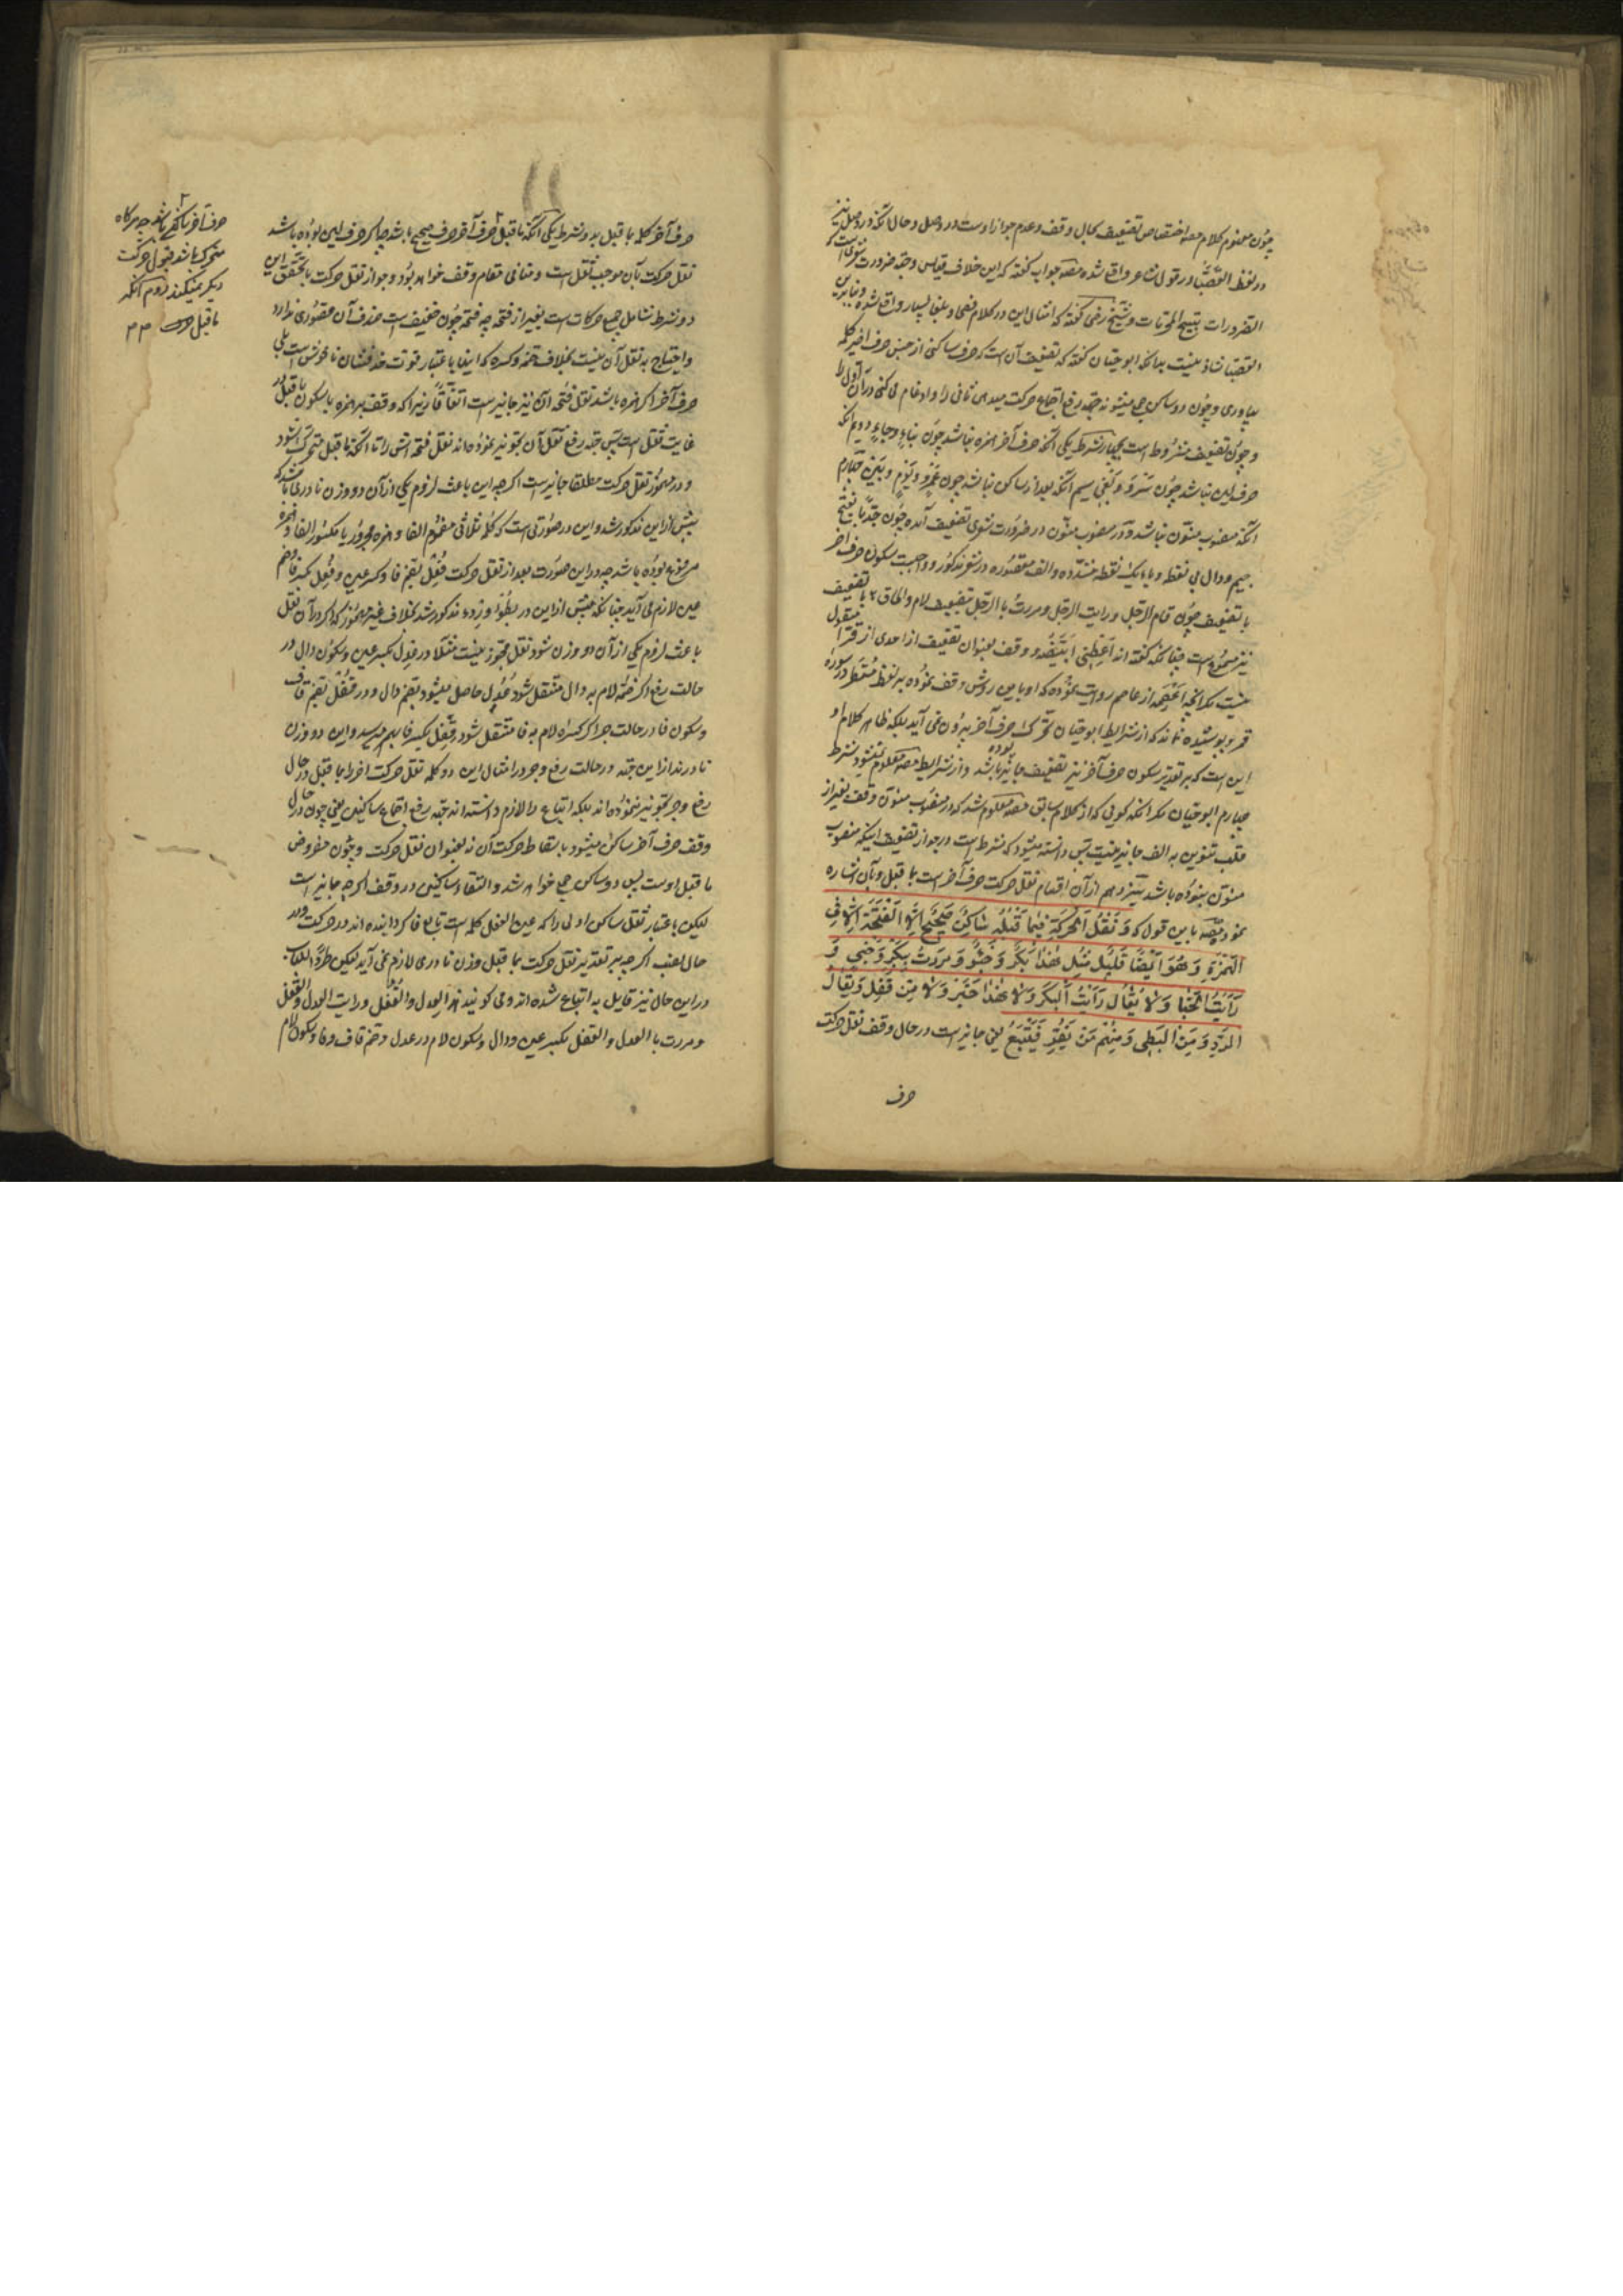 چون مفهوم کلام مصه اختصاص تضعیف بحال وقف و عدم جواز اوست در وصل و حال آنکه در وصل نیز
در لفظ القصبّا در قول شاعر واقع شده مصه جواب گفته که این خلاف قیاس و جهة ضرورت شعری است که
الضرورات تبیح المحرمات و شیخ رضی گفته که امثال این در کلام فصحا و بلغا بسیار واقع شده و بنابراین
القصبّا شاذ نیست بدانکه ابو حیان گفته که تضعیف آن است که حرف ساکنی از جنس حرف اخیر کلمه
بیاوری و چون دو ساکن جمع میشوند جهة رفع اجتماع حرکت میدهی ثانی را و ادغام می کنی در آن اول را
و چون تضعیف مشروط است بچهار شرط یکی آنکه حرف آخر همزه نباشد چون بناء و جاء دویم آنکه
حرف لین نباشد چون سرو و بقی سیم آنکه بعد از ساکن نباشد چون عمرو و یوم و بین چهارم
آنکه منصوب منون نباشد و در منصوب منون در ضرورت شعری تضعیف آمده چون جدبّا بفتح
جیم و دال بی نقطه و باء یک نقطه مشدده و الف مقصوره در شعر مذکور و واجبست سکون حرف آخر
با تضعیف چون قام الرجل و رایت الرجل و مررت با الرجل بتضعیف لام و الحاق ها با تضعیف
نیز مسموعست چنانکه گفته اند اعطنی ابیضه و وقف بعنوان تضعیف از احدی از قراء منقول
نیست مکر آنچه از عاصم روایت نموده که او باین روش وقف نموده بر لفظ مستطر در سوره
قمر و پوشیده نماند که از شرایط ابو حیان تحرک حرف آخر بیرون نمی آید بلکه ظاهر کلام او
این است که بر تقدیر سکون حرف آخر نیز تضعیف جایز بوده باشد و از شرایط مصه معلوم نمیشود شرط
چهارم ابو حیان مکر آنکه گویی که از کلام سابق مصه معلوم شد که در منصوب منون وقف بغیر از
قلب تنوین به الف جایز نیست پس دانسته میشود که شرط است در جواز تضعیف اینکه منصوب
منون نبوده باشد سیزدهم از آن اقسام نقل حرکت حرف آخر است بما قبل و بآن اشاره
نمود مصه باین قول که وَنَقْلُ الْحَرَكَةِ فِيمَا قَبْلَهُ سَاكِنٌ صَحِيحٌ اِلَّا الْفَتْحَةَ اِلَّا فِي
الْهَمْزَةِ وَهُوَ اَيْضًا قَلِيلٌ مِثْلُ هٰذَا بَكُرْ وَخَبُؤْ وَمَرَرْتُ بِبَكِرْ وَخَبِئْ وَ
رَاَيْتُ الْخَبَا وَلَا يُقَالُ رَاَيْتُ الْبَكَرْ وَلَا هٰذَا حِبُرْ وَلَا مِنْ قُفِلْ وَيُقَالُ
الرِّدُؤْ وَمِنَ الْبُطِئْ وَمِنْهُمْ مَنْ يَفِرُّ فَيُتْبِعُ یعنی جایز است در حال وقف نقل حرکت
حرف
حرف آخر کلمه بما قبل بدو شرط یکی آنکه ما قبل حرف آخر حرف صحیح باشد چه اکر حرف لین بوده باشد
نقل حرکت بآن موجب ثقل است و منافی مقام وقف خواهد بود و جواز نقل حرکت با تحقق این
دو شرط شامل جمیع حرکات است بغیر از فتحه چه فتحه چون خفیف است حذف آن قصوری ندارد
و احتیاج به نقل آن نیست بخلاف ضمه و کسره که اینها باعتبار قوت حذفشان ناخوش است بلی
حرف آخر اکر همزه باشد نقل فتحه آن نیز جایز است اتفاقاً زیرا که وقف بر همزه با سکون ما قبل در
غایت ثقل است پس جهة رفع ثقل آن تجویز نموده اند نقل فتحه اش را تا آنکه ما قبل متحرک شود
و در مهموز نقل حرکت مطلقا جایز است اکرچه این باعث لزوم یکی از آن دو وزن نادری باشد که
پیش از این مذکور شد و این در صورتی است که کلمه ثلاثی مضموم الفا و همزه مجرور یا مکسور الفا و همزه
مرفوع بوده باشد چه در این صورت بعد از نقل حرکت فعل بضم فا و کسر عین و فعل بکسر فا و ضم
عین لازم می آید چنانکه پیش از این در بطؤ و ردء مذکور شد بخلاف غیر مهموز که اکر در آن نقل
باعث لزوم یکی از آن دو وزن شود نقل مجوز نیست مثلا در عدل بکسر عین و سکون دال در
حالت رفع اکر ضمه لام به دال منتقل شود عدل حاصل میشود بضم دال و در قفل بضم قاف
و سکون فا در حالت جر اکر کسره لام به فا منتقل شود قفل بکسر فا بهم میرسد و این دو وزن
نادرند از این جهة در حالت رفع و جر در امثال این دو کلمه نقل حرکت آخر را بما قبل در حال
رفع و جر تجویز ننموده اند بلکه اتباع را لازم دانسته اند جهة رفع اجتماع ساکنین یعنی چون در حال
وقف حرف آخر ساکن میشود باسقاط حرکت آن نه بعنوان نقل حرکت و چون مفروض
ما قبل اوست پس دو ساکن جمع خواهد شد و التقاء ساکنین در وقف اکرچه جایز است
لیکن باعتبار ثقل ساکن اولی را که عین الفعل کلمه است تابع فا کردانیده اند در حرکت و در
حال نصب اکرچه بر تقدیر نقل حرکت بما قبل وزن نادری لازم نمی آید لیکن طرداً للباب
در این حال نیز قایل به اتباع شده اند و می کویند هذا العدل و القفل و رایت العدل و القفل
و مررت با العدل و القفل بکسر عین و دال و سکون لام در عدل و ضم قاف و فا و سکون لام
حرف آخر
متحرک باشد قبول حرکت
دیکر نمیکند دوم آنکه
ما قبل حرف